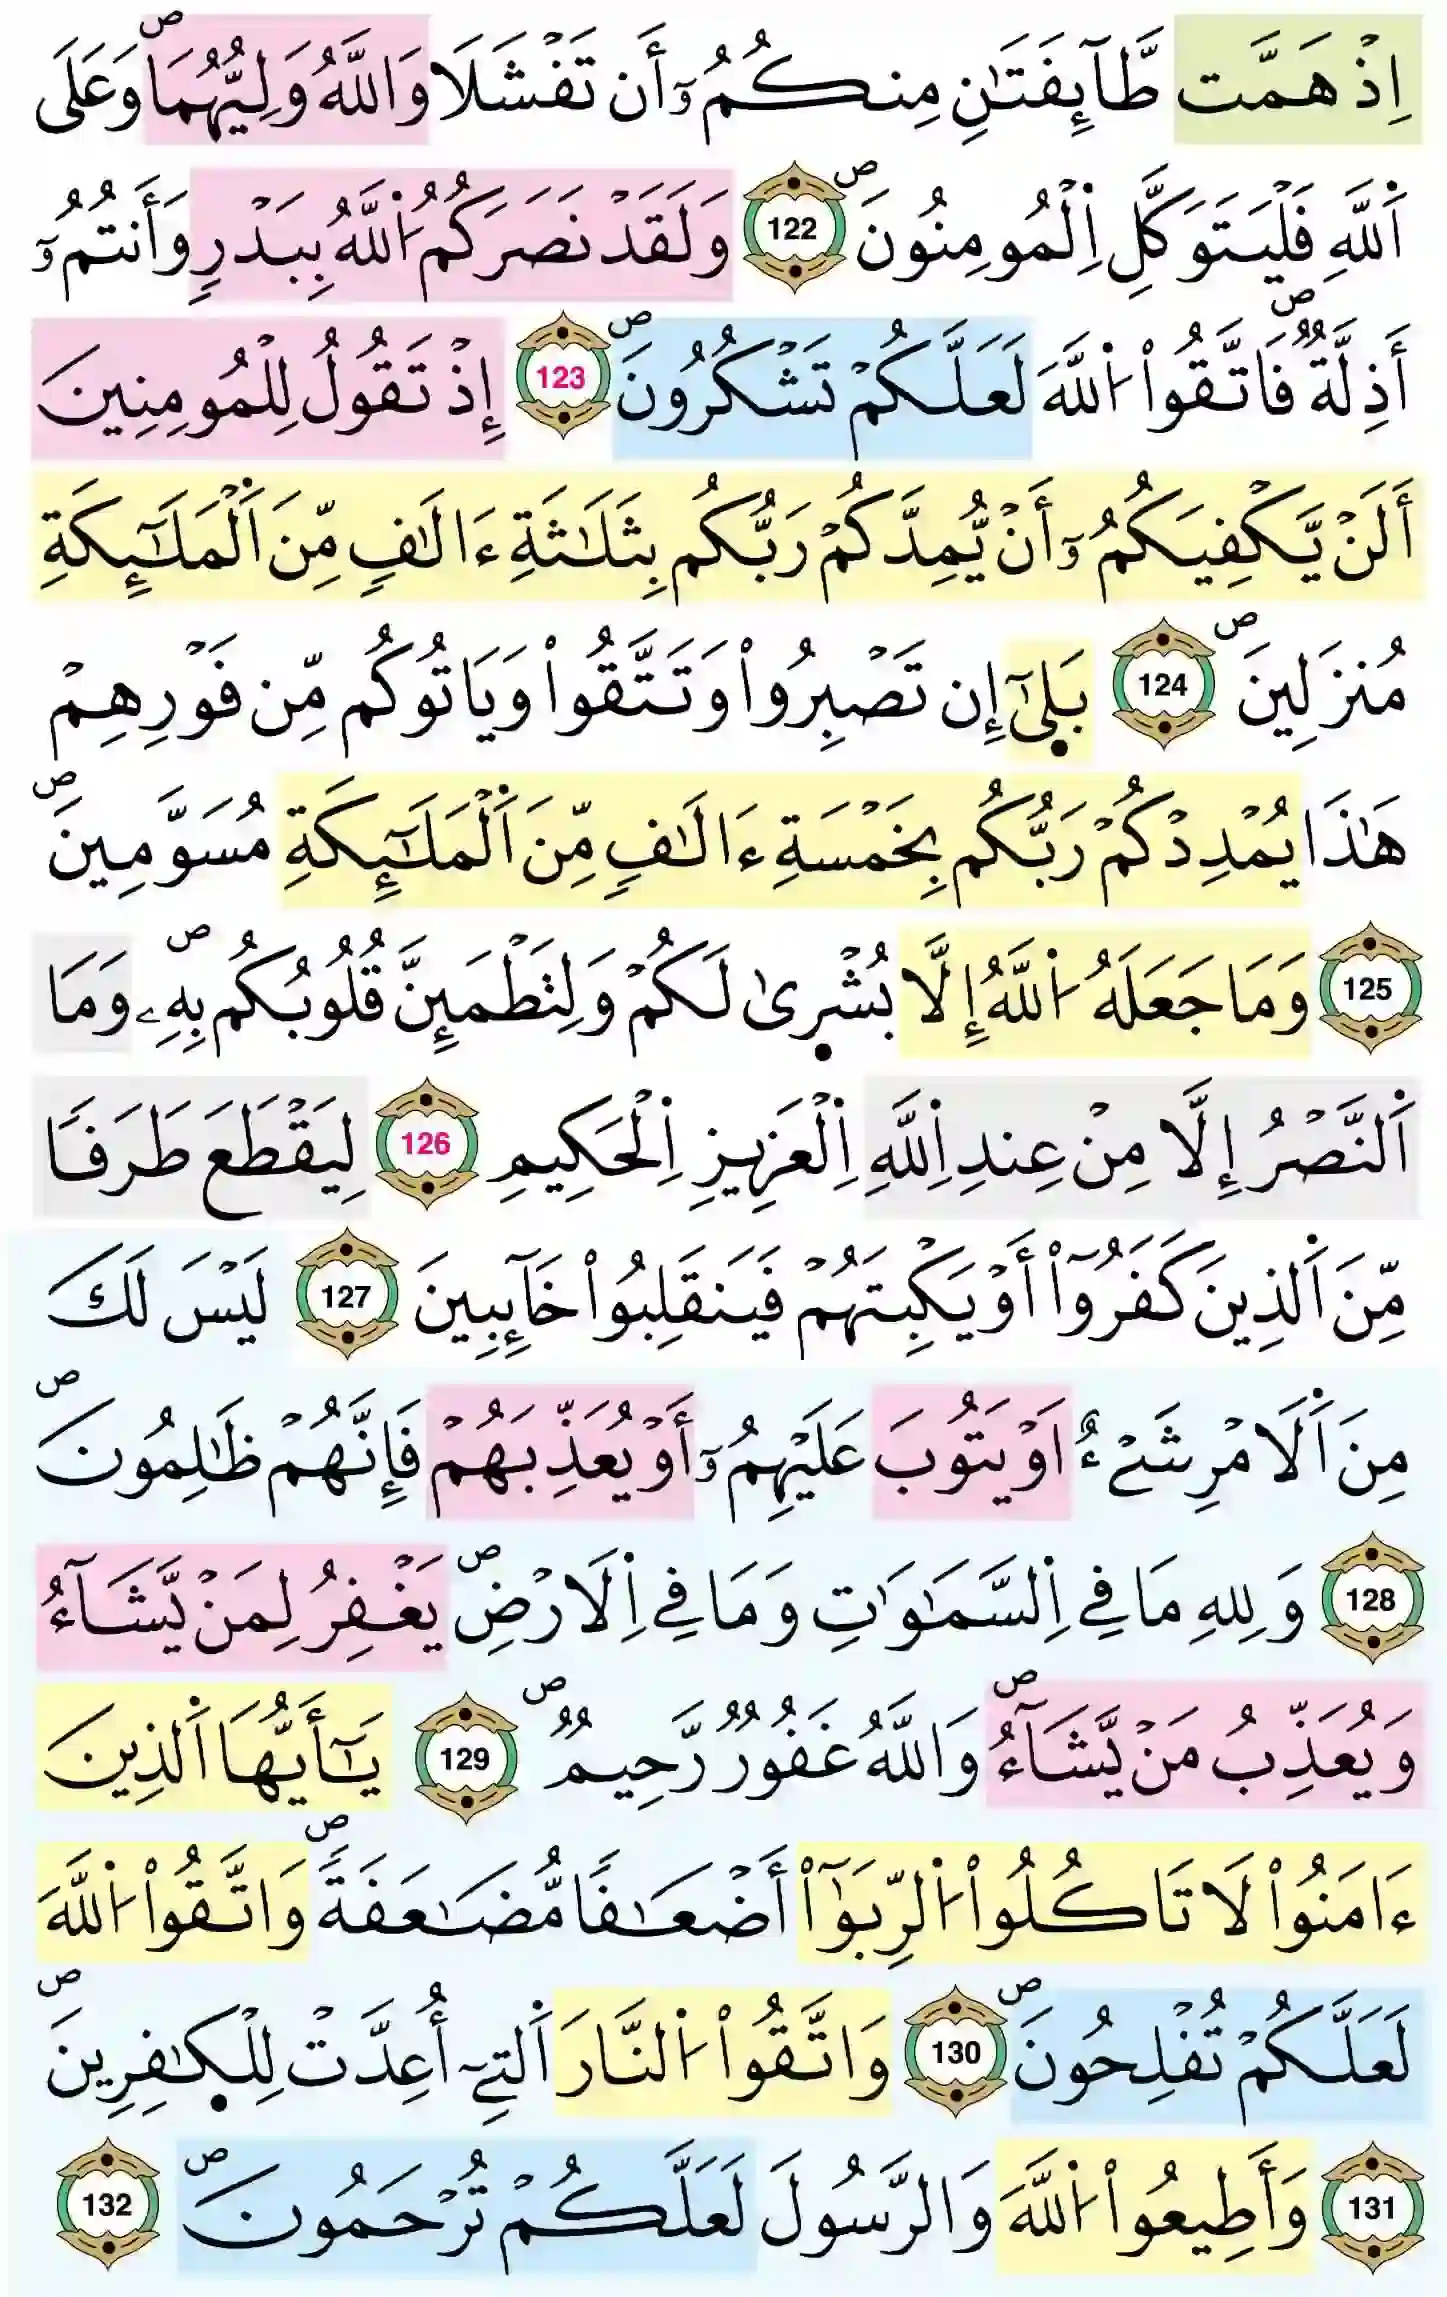 اِذْ هَمَّت طَّآئِفَتَٰنِ مِنكُمُۥٓ أَن تَفْشَلَا وَاللَّهُ وَلِيُّهُمَاۖ وَعَلَى
اَ۬للَّهِ فَلْيَتَوَكَّلِ اِ۬لْمُومِنُونَۖ 122 وَلَقَدْ نَصَرَكُمُ اُ۬للَّهُ بِبَدْرٖ وَأَنتُمُۥٓ
أَذِلَّةٞۖ فَاتَّقُواْ اُ۬للَّهَ لَعَلَّكُمْ تَشْكُرُونَۖ 123 إِذْ تَقُولُ لِلْمُومِنِينَ
أَلَنْ يَّكْفِيَكُمُۥٓ أَنْ يُّمِدَّكُمْ رَبُّكُم بِثَلَٰثَةِ ءَالَٰفٖ مِّنَ اَ۬لْمَلَٰٓئِكَةِ
مُنزَلِينَۖ 124 بَلٰ۪ىٓ إِن تَصْبِرُواْ وَتَتَّقُواْ وَيَاتُوكُم مِّن فَوْرِهِمْ
هَٰذَا يُمْدِدْكُمْ رَبُّكُم بِخَمْسَةِ ءَالَٰفٖ مِّنَ اَ۬لْمَلَٰٓئِكَةِ مُسَوَّمِينَۖ
125 وَمَا جَعَلَهُ اُ۬للَّهُ إِلَّا بُشْر۪ىٰ لَكُمْ وَلِتَطْمَئِنَّ قُلُوبُكُم بِهِۦۖ وَمَا
اَ۬لنَّصْرُ إِلَّا مِنْ عِندِ اِ۬للَّهِ اِ۬لْعَزِيزِ اِ۬لْحَكِيمِ 126 لِيَقْطَعَ طَرَفاٗ
مِّنَ اَ۬لذِينَ كَفَرُوٓاْ أَوْ يَكْبِتَهُمْ فَيَنقَلِبُواْ خَآئِبِينَ 127 لَيْسَ لَكَ
مِنَ اَ۬لَامْرِ شَےْءٌ اَوْ يَتُوبَ عَلَيْهِمُۥٓ أَوْ يُعَذِّبَهُمْ فَإِنَّهُمْ ظَٰلِمُونَۖ
128 وَلِلهِ مَا فِے اِ۬لسَّمَٰوَٰتِ وَمَا فِے اِ۬لَارْضِۖ يَغْفِرُ لِمَنْ يَّشَآءُ
وَيُعَذِّبُ مَنْ يَّشَآءُۖ وَاللَّهُ غَفُورٞ رَّحِيمٞۖ 129 يَٰٓأَيُّهَا اَ۬لذِينَ
ءَامَنُواْ لَا تَاكُلُواْ اُ۬لرِّبَوٰٓاْ أَضْعَٰفاٗ مُّضَٰعَفَةٗۖ وَاتَّقُواْ اُ۬للَّهَ
لَعَلَّكُمْ تُفْلِحُونَۖ 130 وَاتَّقُواْ اُ۬لنَّارَ اَ۬لتِےٓ أُعِدَّتْ لِلْكٰ۪فِرِينَۖ
131 وَأَطِيعُواْ اُ۬للَّهَ وَالرَّسُولَ لَعَلَّكُمْ تُرْحَمُونَۖ 132